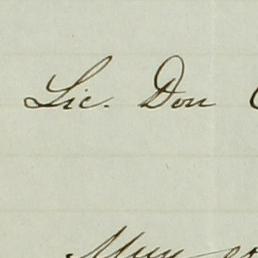 Lic. Don
Muy